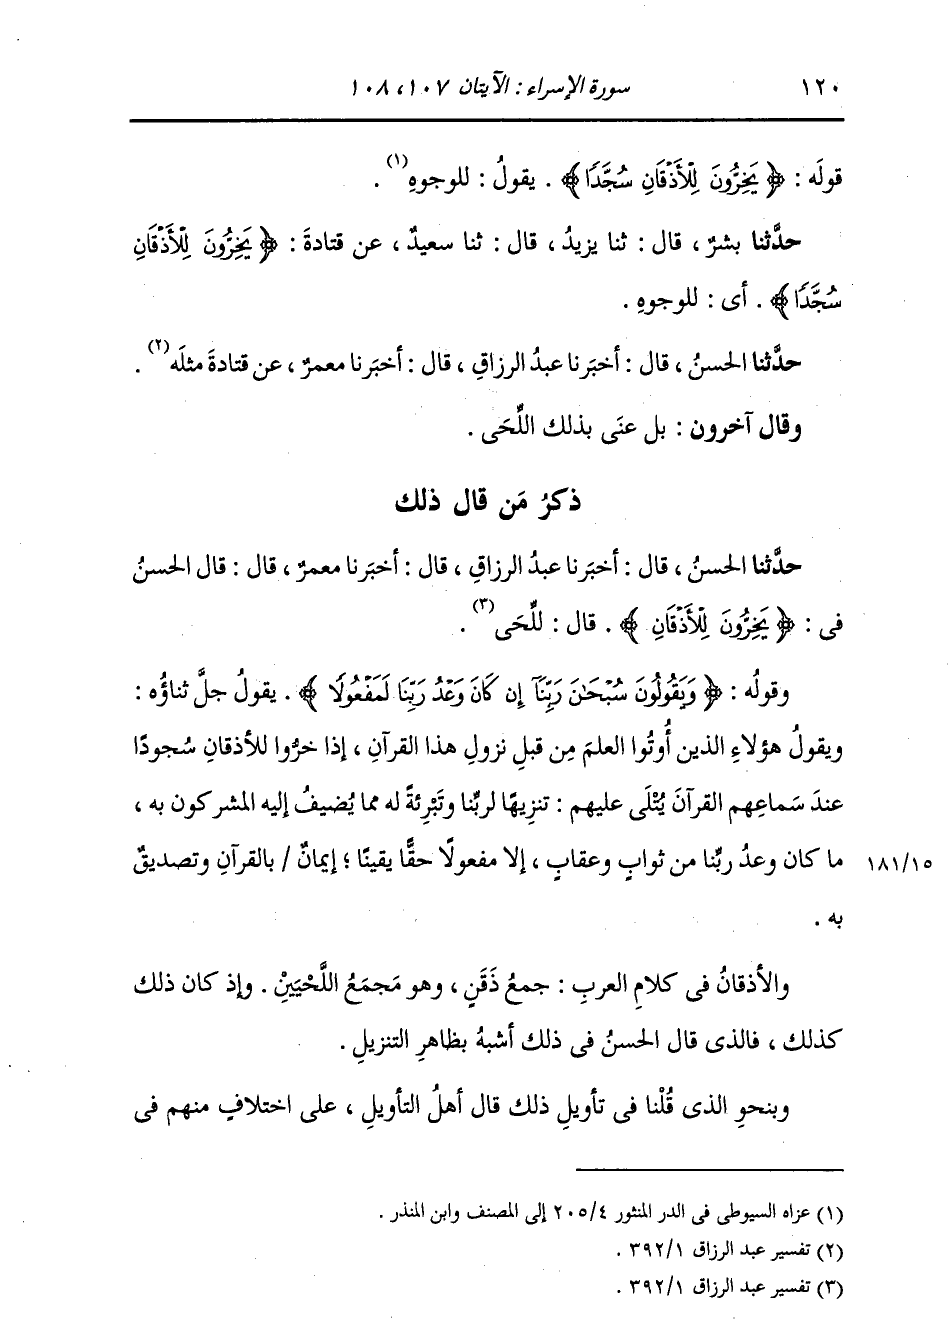 ١٢٠ سورة الإسراء : الآيتان ١٠٧، ١٠٨
قولَه : ﴿ يَخِرُّونَ لِلْأَذْقَانِ سُجَّدًا ﴾ . يقولُ : للوجوهِ(١) .
حدَّثنا بشرٌ ، قال : ثنا يزيدُ ، قال : ثنا سعيدٌ ، عن قتادةَ : ﴿ يَخِرُّونَ لِلْأَذْقَانِ
سُجَّدًا ﴾ . أى : للوجوهِ .
حدَّثنا الحسنُ ، قال : أخبَرنا عبدُ الرزاقِ ، قال : أخبَرنا معمرٌ ، عن قتادةَ مثلَه(٢) .
وقال آخرون : بل عنَى بذلك اللِّحَى .
ذكرُ مَن قال ذلك
حدَّثنا الحسنُ ، قال : أخبَرنا عبدُ الرزاقِ ، قال : أخبَرنا معمرٌ ، قال : قال الحسنُ
فى : ﴿ يَخِرُّونَ لِلْأَذْقَانِ ﴾ . قال : للِّحَى(٣) .
وقولُه : ﴿ وَيَقُولُونَ سُبْحَٰنَ رَبِّنَآ إِن كَانَ وَعْدُ رَبِّنَا لَمَفْعُولًا ﴾ . يقولُ جلَّ ثناؤُه :
ويقولُ هؤلاءِ الذين أُوتُوا العلمَ مِن قبلِ نزولِ هذا القرآنِ ، إذا خرُّوا للأذقانِ سُجودًا
عندَ سَماعِهم القرآنَ يُتْلَى عليهم : تنزيهًا لربِّنا وتَبْرِئةً له مما يُضيفُ إليه المشركون به ،
ما كان وعدُ ربِّنا من ثوابٍ وعقابٍ ، إلا مفعولًا حقًّا يقينًا ؛ إيمانٌ / بالقرآنِ وتصديقٌ ١٨١/١٥
به .
والأذقانُ فى كلامِ العربِ : جمعُ ذَقَنٍ ، وهو مَجمَعُ اللَّحْيَيْنِ . وإذ كان ذلك
كذلك ، فالذى قال الحسنُ فى ذلك أشبهُ بظاهرِ التنزيلِ .
وبنحوِ الذى قُلْنا فى تأويلِ ذلك قال أهلُ التأويلِ ، على اختلافٍ منهم فى
(١) عزاه السيوطى فى الدر المنثور ٢٠٥/٤ إلى المصنف وابن المنذر .
(٢) تفسير عبد الرزاق ٣٩٢/١ .
(٣) تفسير عبد الرزاق ٣٩٢/١ .